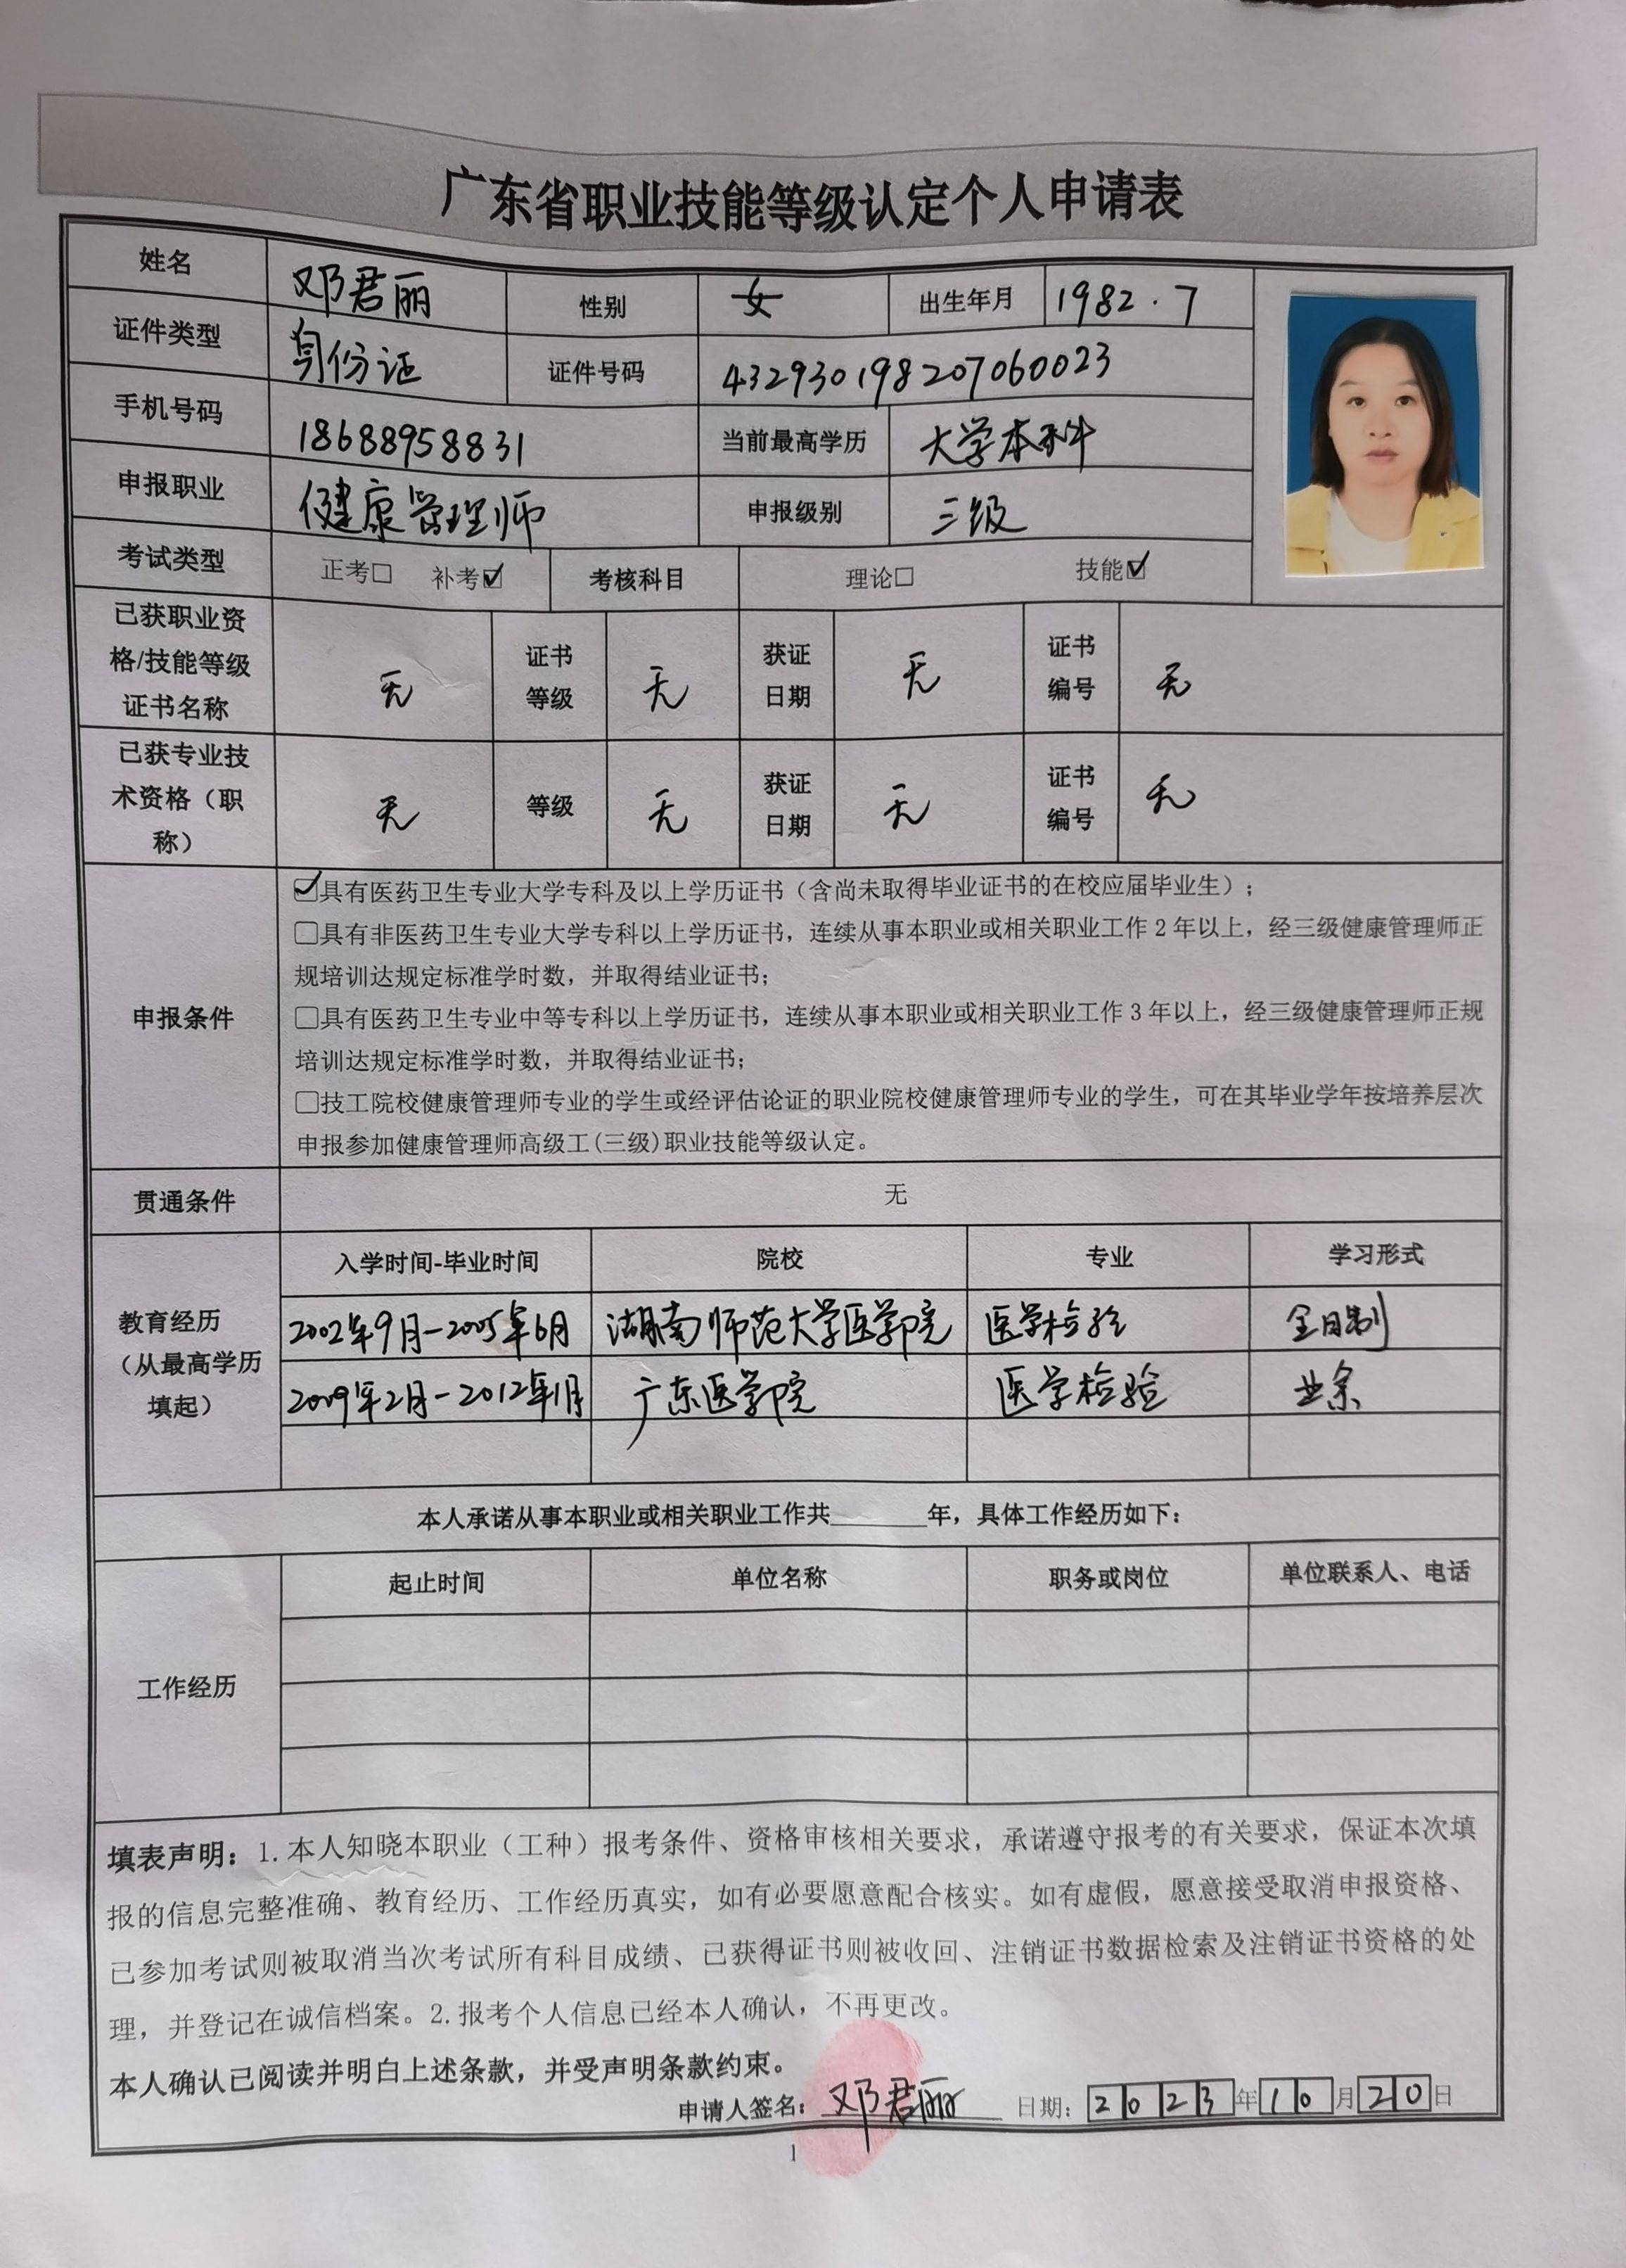 广东省职业技能等级认定个人申请表
姓名 邓君丽 性别 女 出生年月 1982.7
证件类型 身份证 证件号码 432930198207060023
手机号码 18688958831 当前最高学历 大学本科
申报职业 健康管理师 申报级别 三级
考试类型 正考□ 补考☑ 考核科目 理论□ 技能☑
已获职业资格/技能等级证书名称 无 证书等级 无 获证日期 无 证书编号 无
已获专业技术资格（职称） 无 等级 无 获证日期 无 证书编号 无
申报条件
☑具有医药卫生专业大学专科及以上学历证书（含尚未取得毕业证书的在校应届毕业生）；
□具有非医药卫生专业大学专科以上学历证书，连续从事本职业或相关职业工作2年以上，经三级健康管理师正
规培训达规定标准学时数，并取得结业证书；
□具有医药卫生专业中等专科以上学历证书，连续从事本职业或相关职业工作3年以上，经三级健康管理师正规
培训达规定标准学时数，并取得结业证书；
□技工院校健康管理师专业的学生或经评估论证的职业院校健康管理师专业的学生，可在其毕业学年按培养层次
申报参加健康管理师高级工(三级)职业技能等级认定。
贯通条件 无
教育经历（从最高学历填起） 入学时间-毕业时间 院校 专业 学习形式
2002年9月-2005年6月 湖南师范大学医学院 医学检验 全日制
2009年2月-2012年1月 广东医学院 医学检验 业余
本人承诺从事本职业或相关职业工作共____年，具体工作经历如下：
工作经历 起止时间 单位名称 职务或岗位 单位联系人、电话
填表声明：1.本人知晓本职业（工种）报考条件、资格审核相关要求，承诺遵守报考的有关要求，保证本次填
报的信息完整准确、教育经历、工作经历真实，如有必要愿意配合核实。如有虚假，愿意接受取消申报资格、
已参加考试则被取消当次考试所有科目成绩、已获得证书则被收回、注销证书数据检索及注销证书资格的处
理，并登记在诚信档案。2.报考个人信息已经本人确认，不再更改。
本人确认已阅读并明白上述条款，并受声明条款约束。
申请人签名：邓君丽 日期：2023年10月20日
1